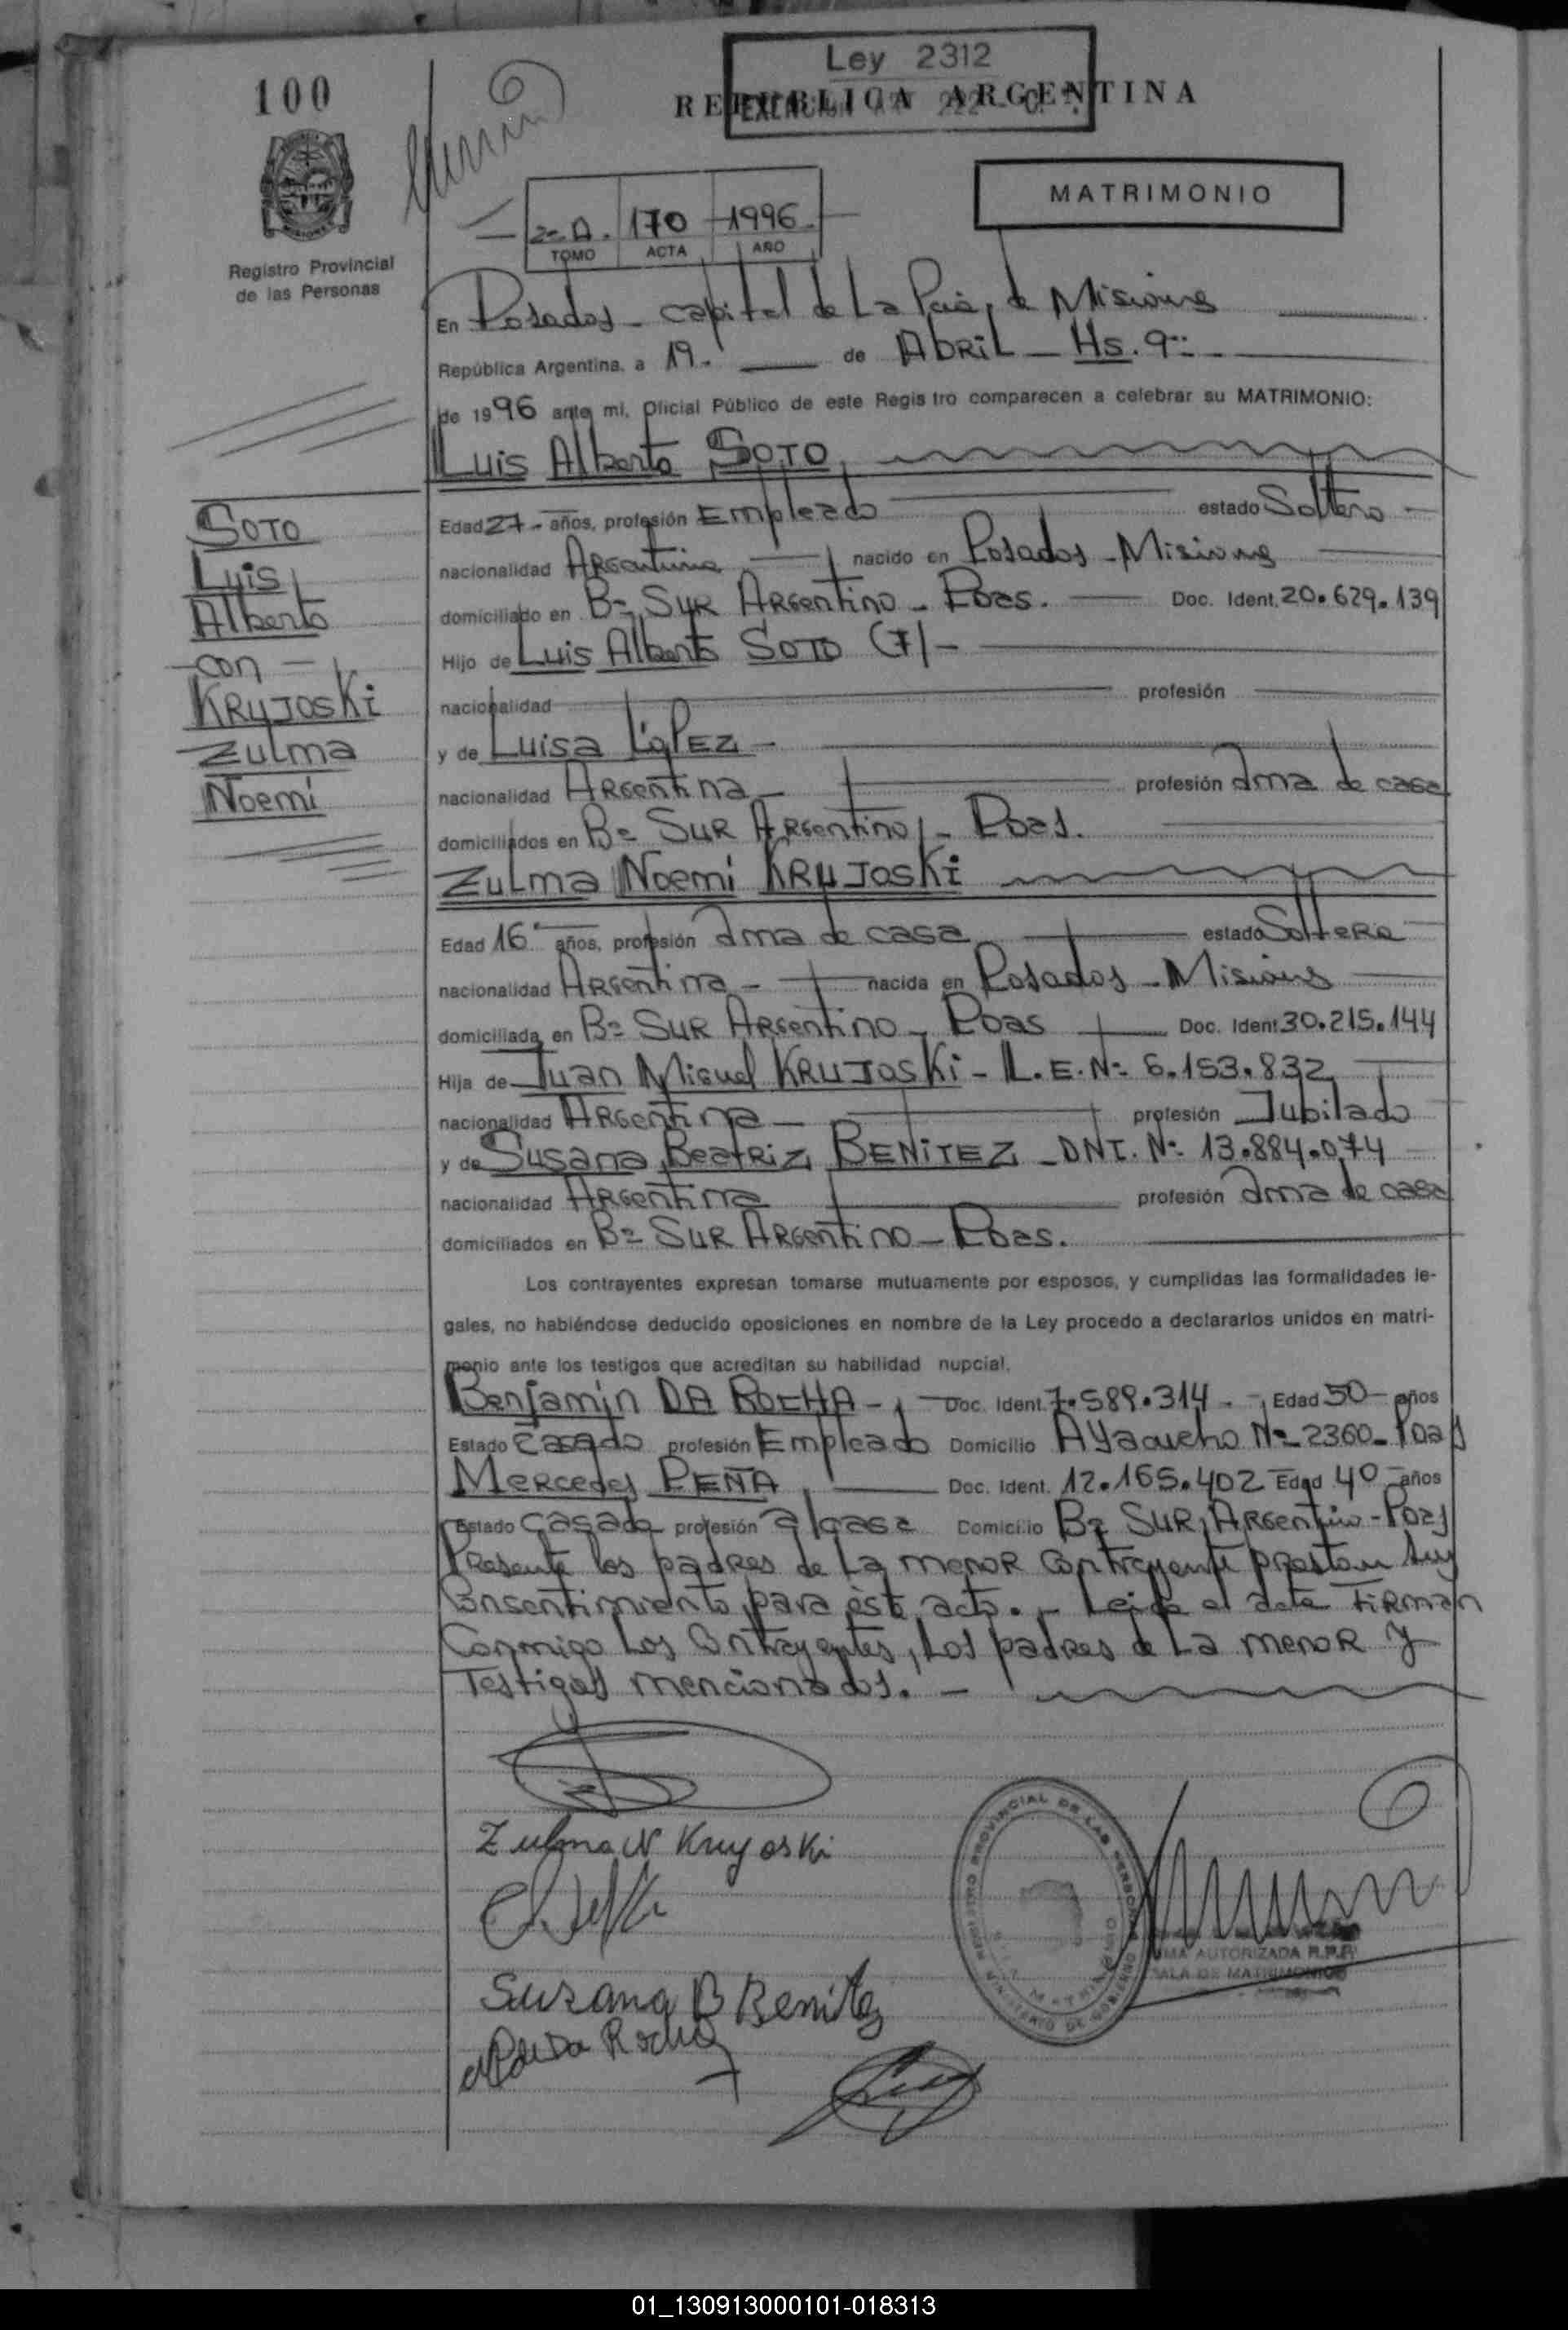 Ley 2312
100
REPUBLICA ARGENTINA
MATRIMONIO
2-A. 170 1996.
TOMO ACTA AÑO
Registro Provincial
de las Personas
En Posadas - capital de La Pcia, de Misiones
República Argentina, a 19. de Abril - Hs. 9
de 1996 ante mi, Oficial Público de este Registro comparecen a celebrar su MATRIMONIO:
Luis Alberto SOTO
SOTO
Luis
Alberto
con
KRUJOSKi
Zulma
Noemí
Edad 27 - años, profesión Empleado estado Soltero
nacionalidad Argentina nacido en Posadas - Misiones
domiciliado en Bº Sur Argentino - Pdas. Doc. Ident. 20.629.139
Hijo de Luis Alberto SOTO (F) -
nacionalidad profesión
y de Luisa LóPEZ -
nacionalidad Argentina - profesión ama de casa
domiciliados en Bº Sur Argentino - Pdas.
Zulma Noemi KRUJOSKi
Edad 16 años, profesión ama de casa estado Soltera
nacionalidad Argentina - nacida en Posadas - Misiones
domiciliada en Bº Sur Argentino - Pdas Doc. Ident 30.215.144
Hija de Juan Miguel KRUJOSKi - L.E. Nº 6.153.832
nacionalidad Argentina - profesión Jubilado
y de Susana Beatriz BENiTEZ - DNI. Nº 13.884.074
nacionalidad Argentina profesión ama de casa
domiciliados en Bº Sur Argentino - Pdas.
Los contrayentes expresan tomarse mutuamente por esposos, y cumplidas las formalidades le-
gales, no habiéndose deducido oposiciones en nombre de la Ley procedo a declararlos unidos en matri-
monio ante los testigos que acreditan su habilidad nupcial.
Benjamín DA ROCHA - Doc. Ident. 7.589.314 - Edad 50 años
Estado casado profesión Empleado Domicilio Ayacucho Nº 2360 - Pdas
Mercedes PEÑA Doc. Ident. 12.165.402 Edad 40 años
Estado casada profesión a/casa Domicilio Bº Sur Argentino - Pdas
Presente los padres de La menor contrayente prestan sus
consentimiento para éste acto. - Leida el acta Firman
conmigo Los contrayentes, Los padres de La menor y
Testigos mencionados. -
Zulma N Krujoski
Susana B Benitez
da Rocha
REGISTRO PROVINCIAL DE LAS PERSONAS
MINISTERIO DE GOBIERNO
MATRIMONIO
FIRMA AUTORIZADA R.P.P.
SALA DE MATRIMONIOS
01_130913000101-018313